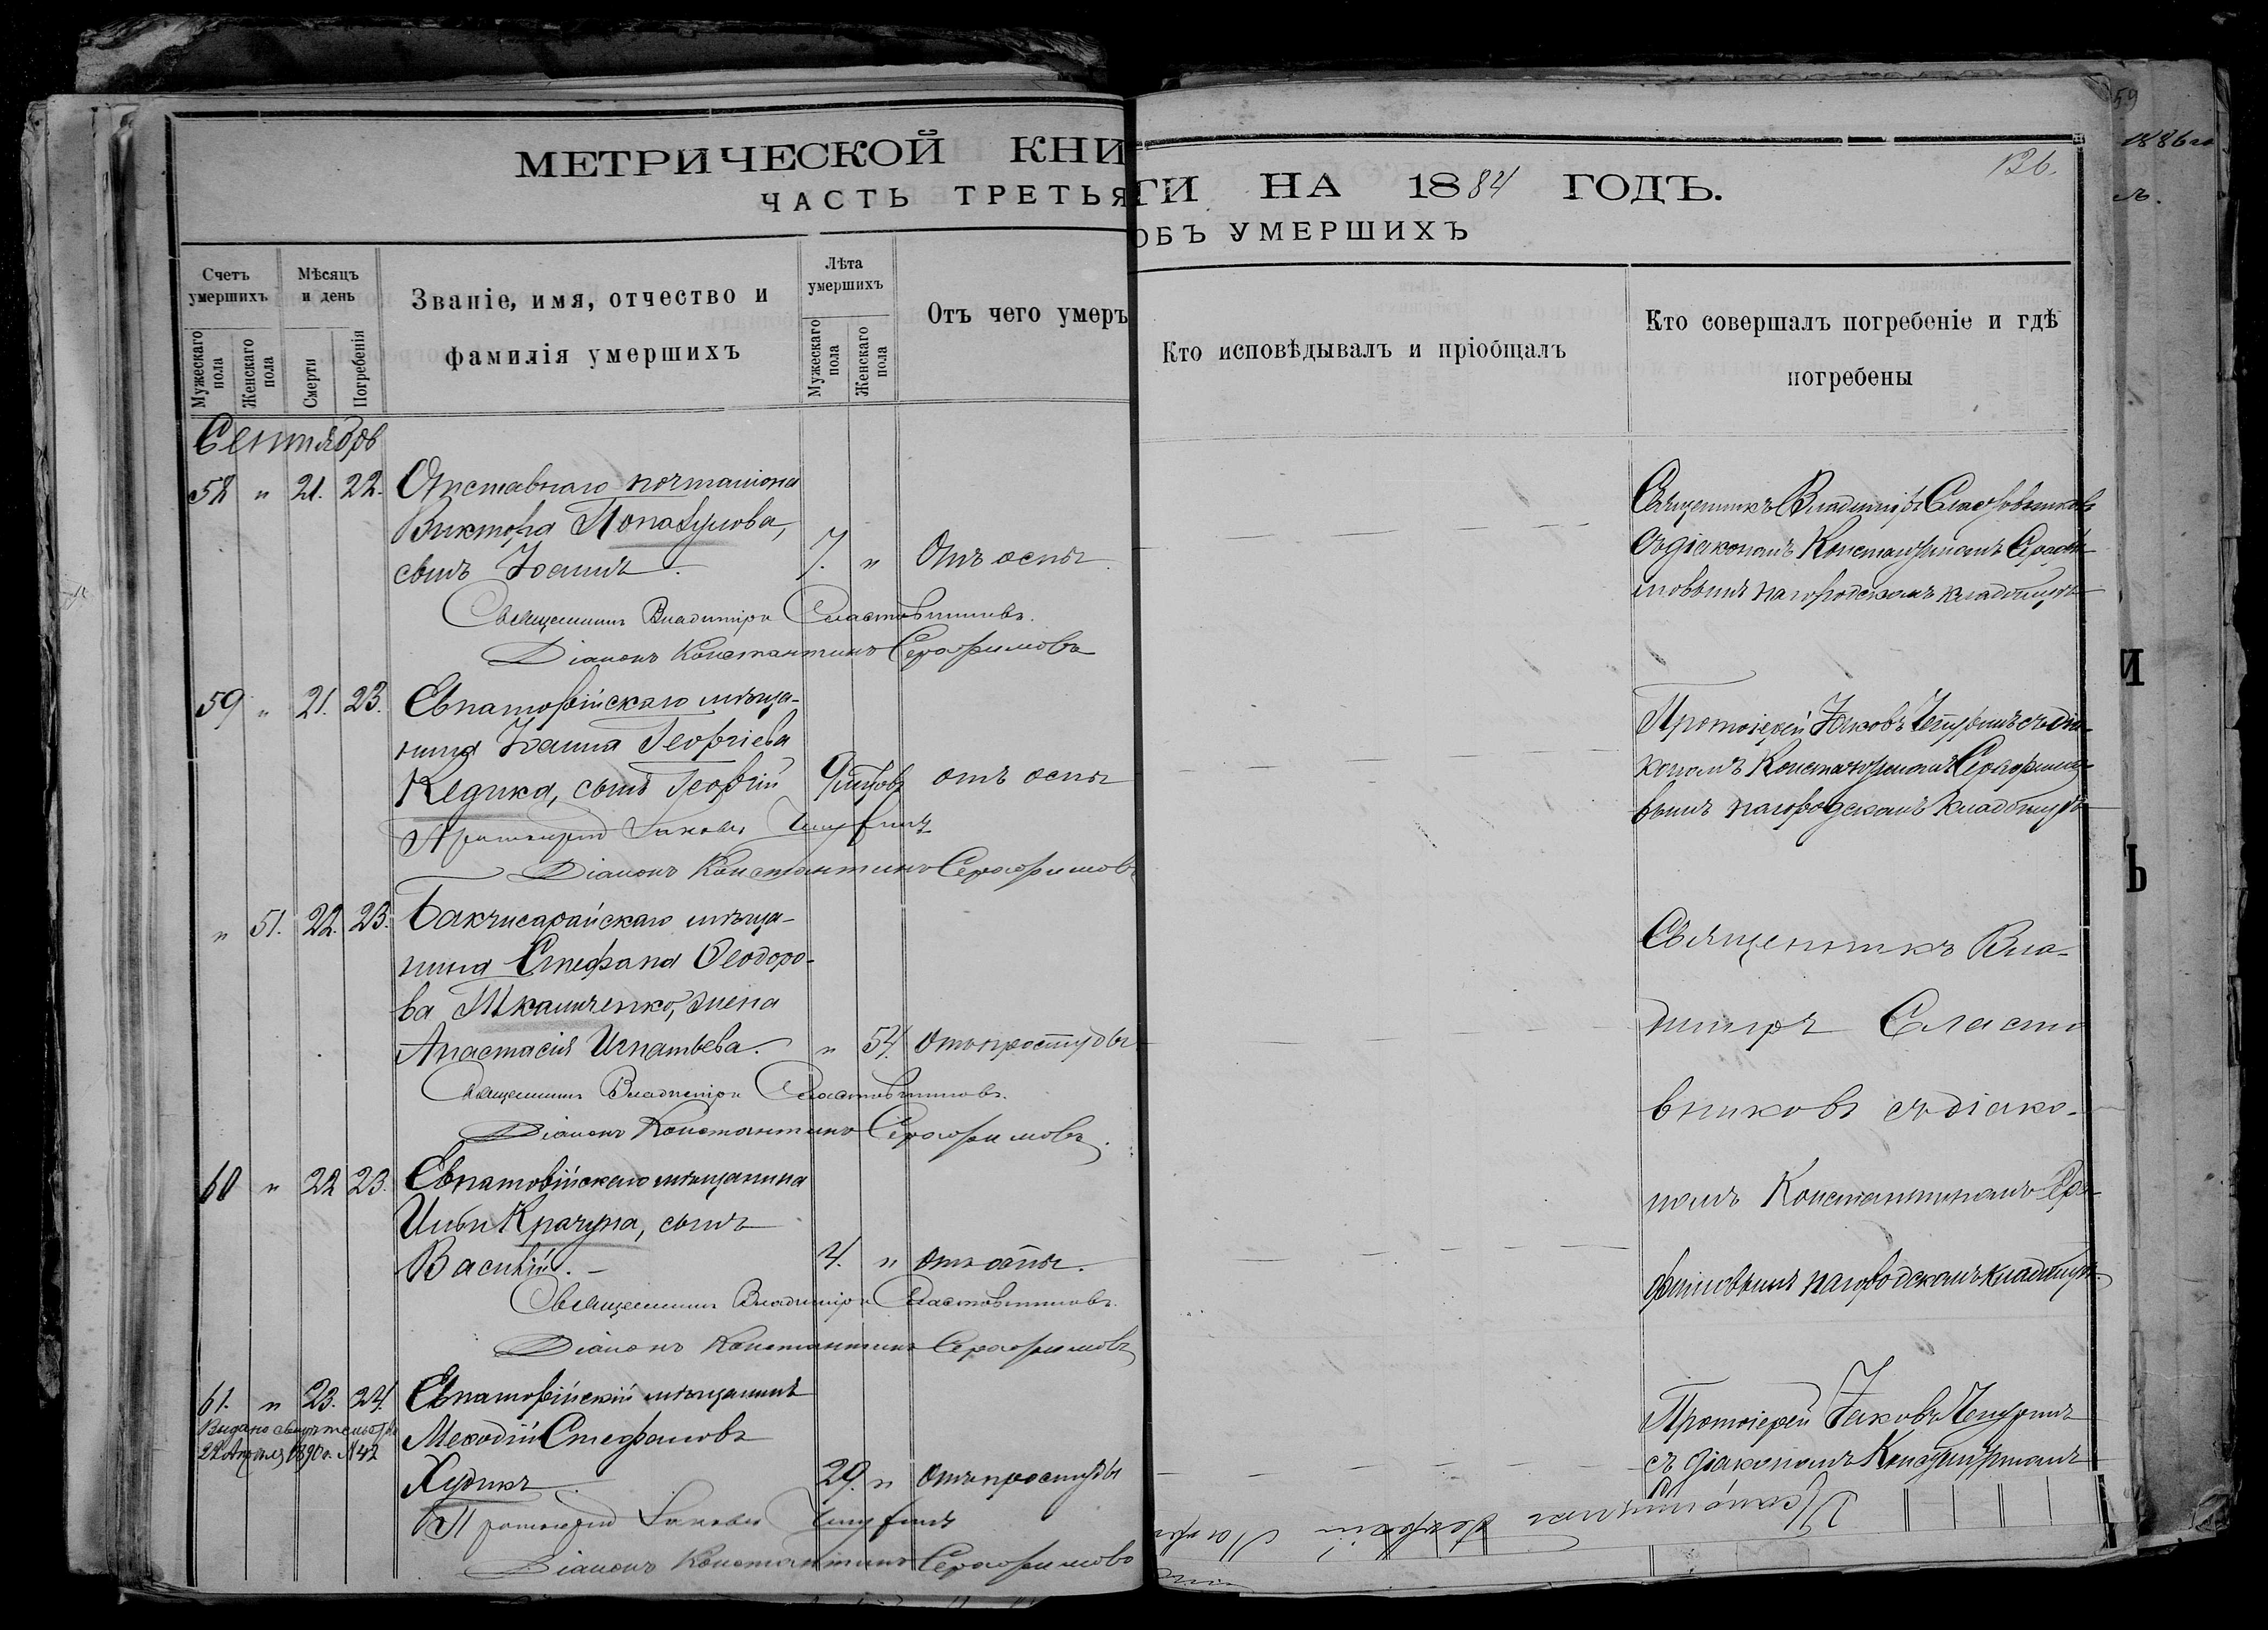 МЕТРИЧЕСКОЙ КНИ
ЧАСТЬ ТРЕТЬЯ
Счетъ умершихъ
Мужескаго пола
Женскаго пола
Мѣсяцъ и день
Смерти
Погребенія
Званіе, имя, отчество и
фамилія умершихъ
Лѣта умершихъ
Мужескаго пола
Женскаго пола
Отъ чего умеръ
Сентябрь
58 " 21. 22. Отставнаго почталіона
Виктора
сынъ Іоаннъ. 7. " Отъ оспы.
Священникъ Владиміръ Сластовниковъ.
Діаконъ Константинъ Серафимовъ
59 " 21. 23. Евпаторійскаго мѣща-
нина Іоанна Георгіева
Кедика, сынъ Георгій 9 отъ оспы
Протоіерей Іаковъ Чепуринъ
Діаконъ Константинъ Серафимовъ
" 51. 22. 23. Бакчисарайскаго мѣща-
нина Стефана Ѳеодоро-
ва Ткаличенко, жена
Анастасія Игнатьева. " 54. Отъ простуды
Священникъ Владиміръ Сластовниковъ.
Діаконъ Константинъ Серафимовъ.
60 " 22 23. Евпаторійскаго мѣщанина
Ильи Крачуна, сынъ
Василій. 4. " Отъ оспы.
Священникъ Владиміръ Сластовниковъ.
Діаконъ Константинъ Серафимовъ
61. " 23. 24. Евпаторійскій мѣщанинъ
Выдано свидѣтельство
22 Апрѣля 1890 г. №42
Меѳодій Стефановъ
Худикъ. 29. " Отъ простуды
Протоіерей Іаковъ Чепуринъ
Діаконъ Константинъ Серафимовъ
ГИ НА 1884 ГОДЪ.
126.
ОБЪ УМЕРШИХЪ
Кто исповѣдывалъ и пріобщалъ
Кто совершалъ погребеніе и гдѣ
погребены
Священникъ Владиміръ Сластовниковъ
съ діакономъ Константиномъ Серафи-
мовымъ на городскомъ кладбищѣ
Протоіерей Іаковъ Чепуринъ съ діа-
кономъ Константиномъ Серафимо-
вымъ на городскомъ кладбищѣ
Священникъ Вла-
диміръ Сласто
вниковъ съ діако-
номъ Константиномъ Сера-
фимовымъ на городскомъ кладбищѣ
Протоіерей Іаковъ Чепуринъ
съ діакономъ Константиномъ
59
1886 го
И
Ъ